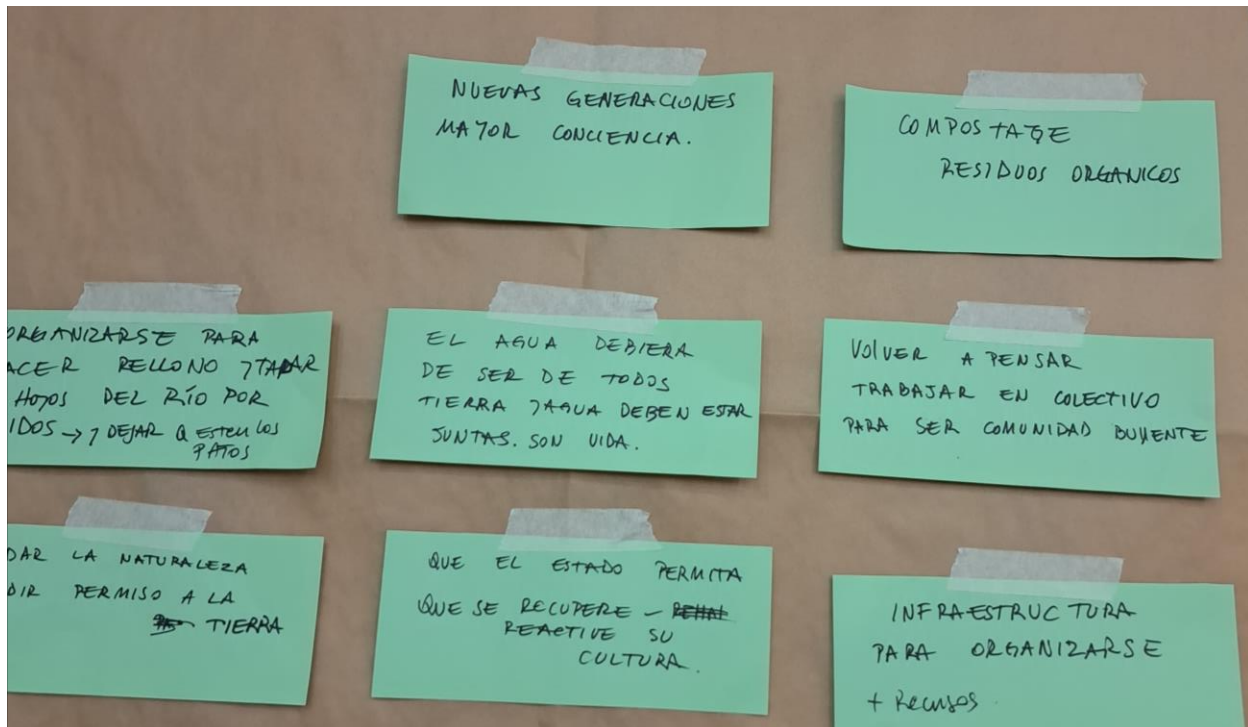 NUEVAS GENERACIONES
MAYOR CONCIENCIA.
COMPOSTAGE
RESIDUOS ORGANICOS
ORGANIZARSE PARA
ACER RELLONO Y TAPAR
HOYOS DEL RÍO POR
IDOS → Y DEJAR Q ESTEN LOS
PATOS
EL AGUA DEBIERA
DE SER DE TODOS
TIERRA Y AGUA DEBEN ESTAR
JUNTAS. SON VIDA.
VOLVER A PENSAR
TRABAJAR EN COLECTIVO
PARA SER COMUNIDAD
DAR LA NATURALEZA
DIR PERMISO A LA
TIERRA
QUE EL ESTADO PERMITA
QUE SE RECUPERE -
REACTIVE SU
CULTURA.
INFRAESTRUCTURA
PARA ORGANIZARSE
+ Recursos